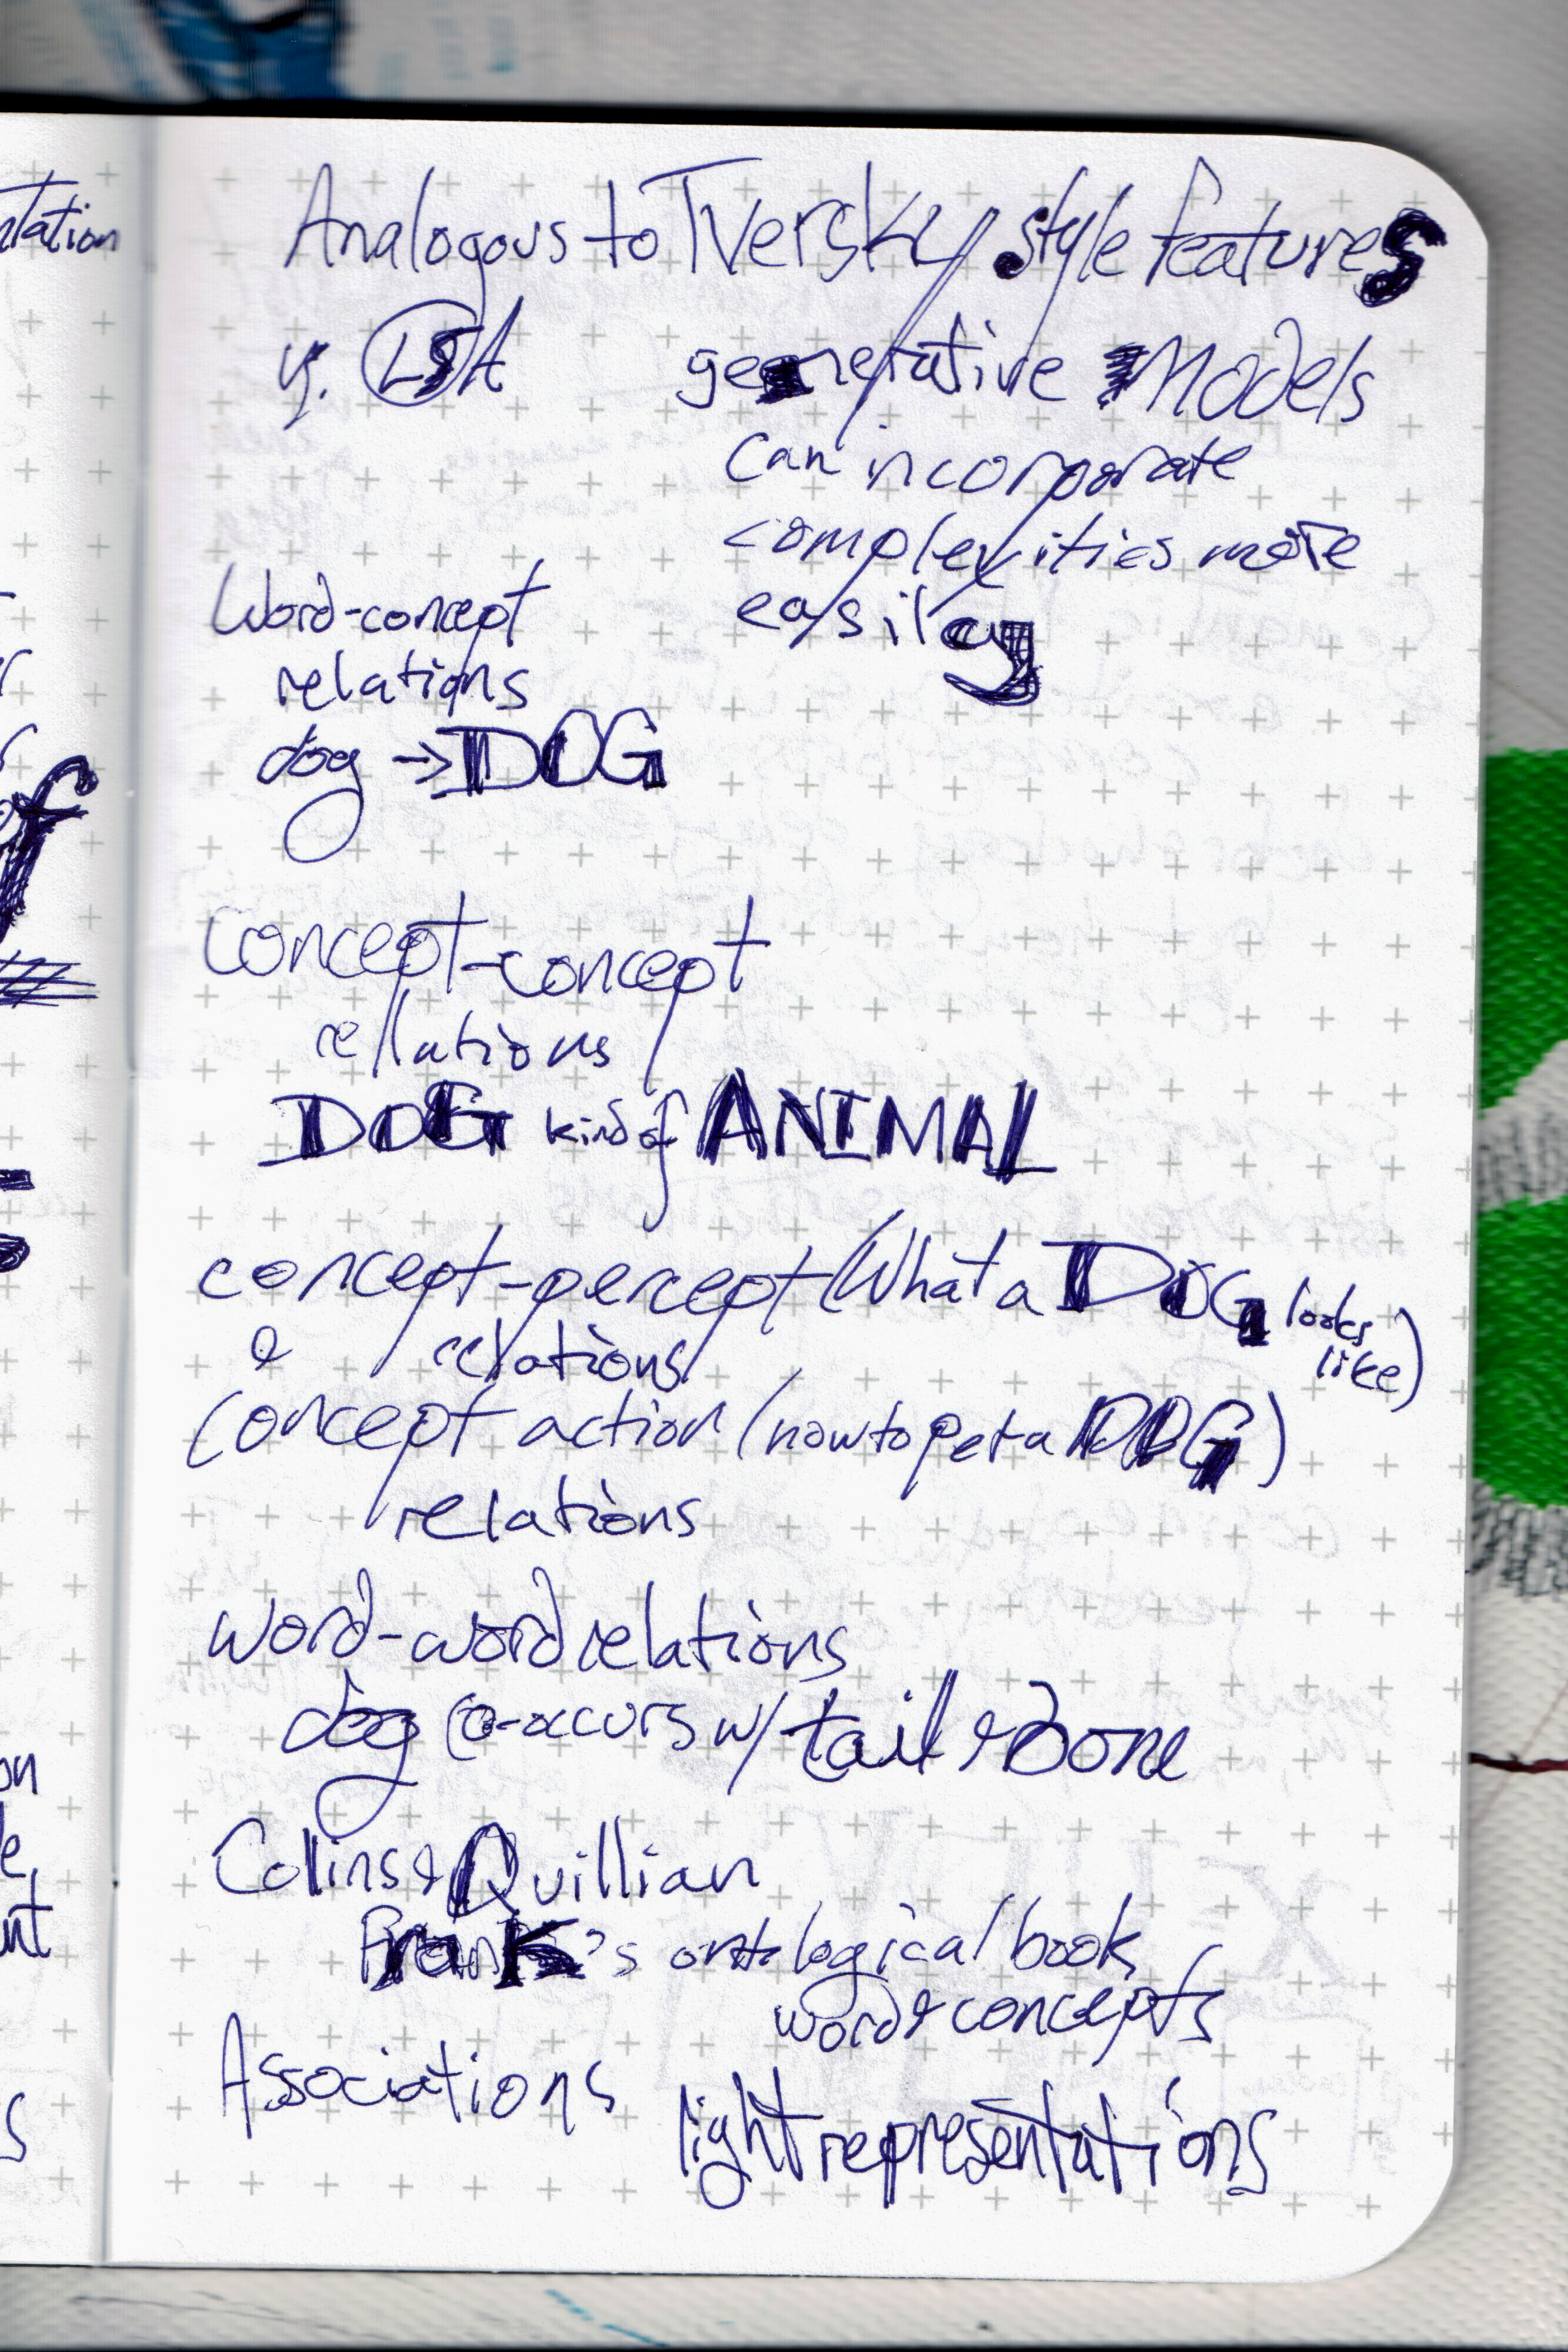 Analogous to Tversky style features
vs. LSA
generative Models
can incorporate
complexities more
easily
Word-concept
relations
dog → DOG
concept-concept
rellations
DOG kind of ANIMAL
concept-percept (What a DOG looks
like)
& relations
concept action (how to pet a DOG)
relations
word-word relations
dog co-occurs w/ tail & bone
Collins & Quillian
Frank's ontological book
word & concepts
Associations
light representations
ntation
of
on
e,
nt
s